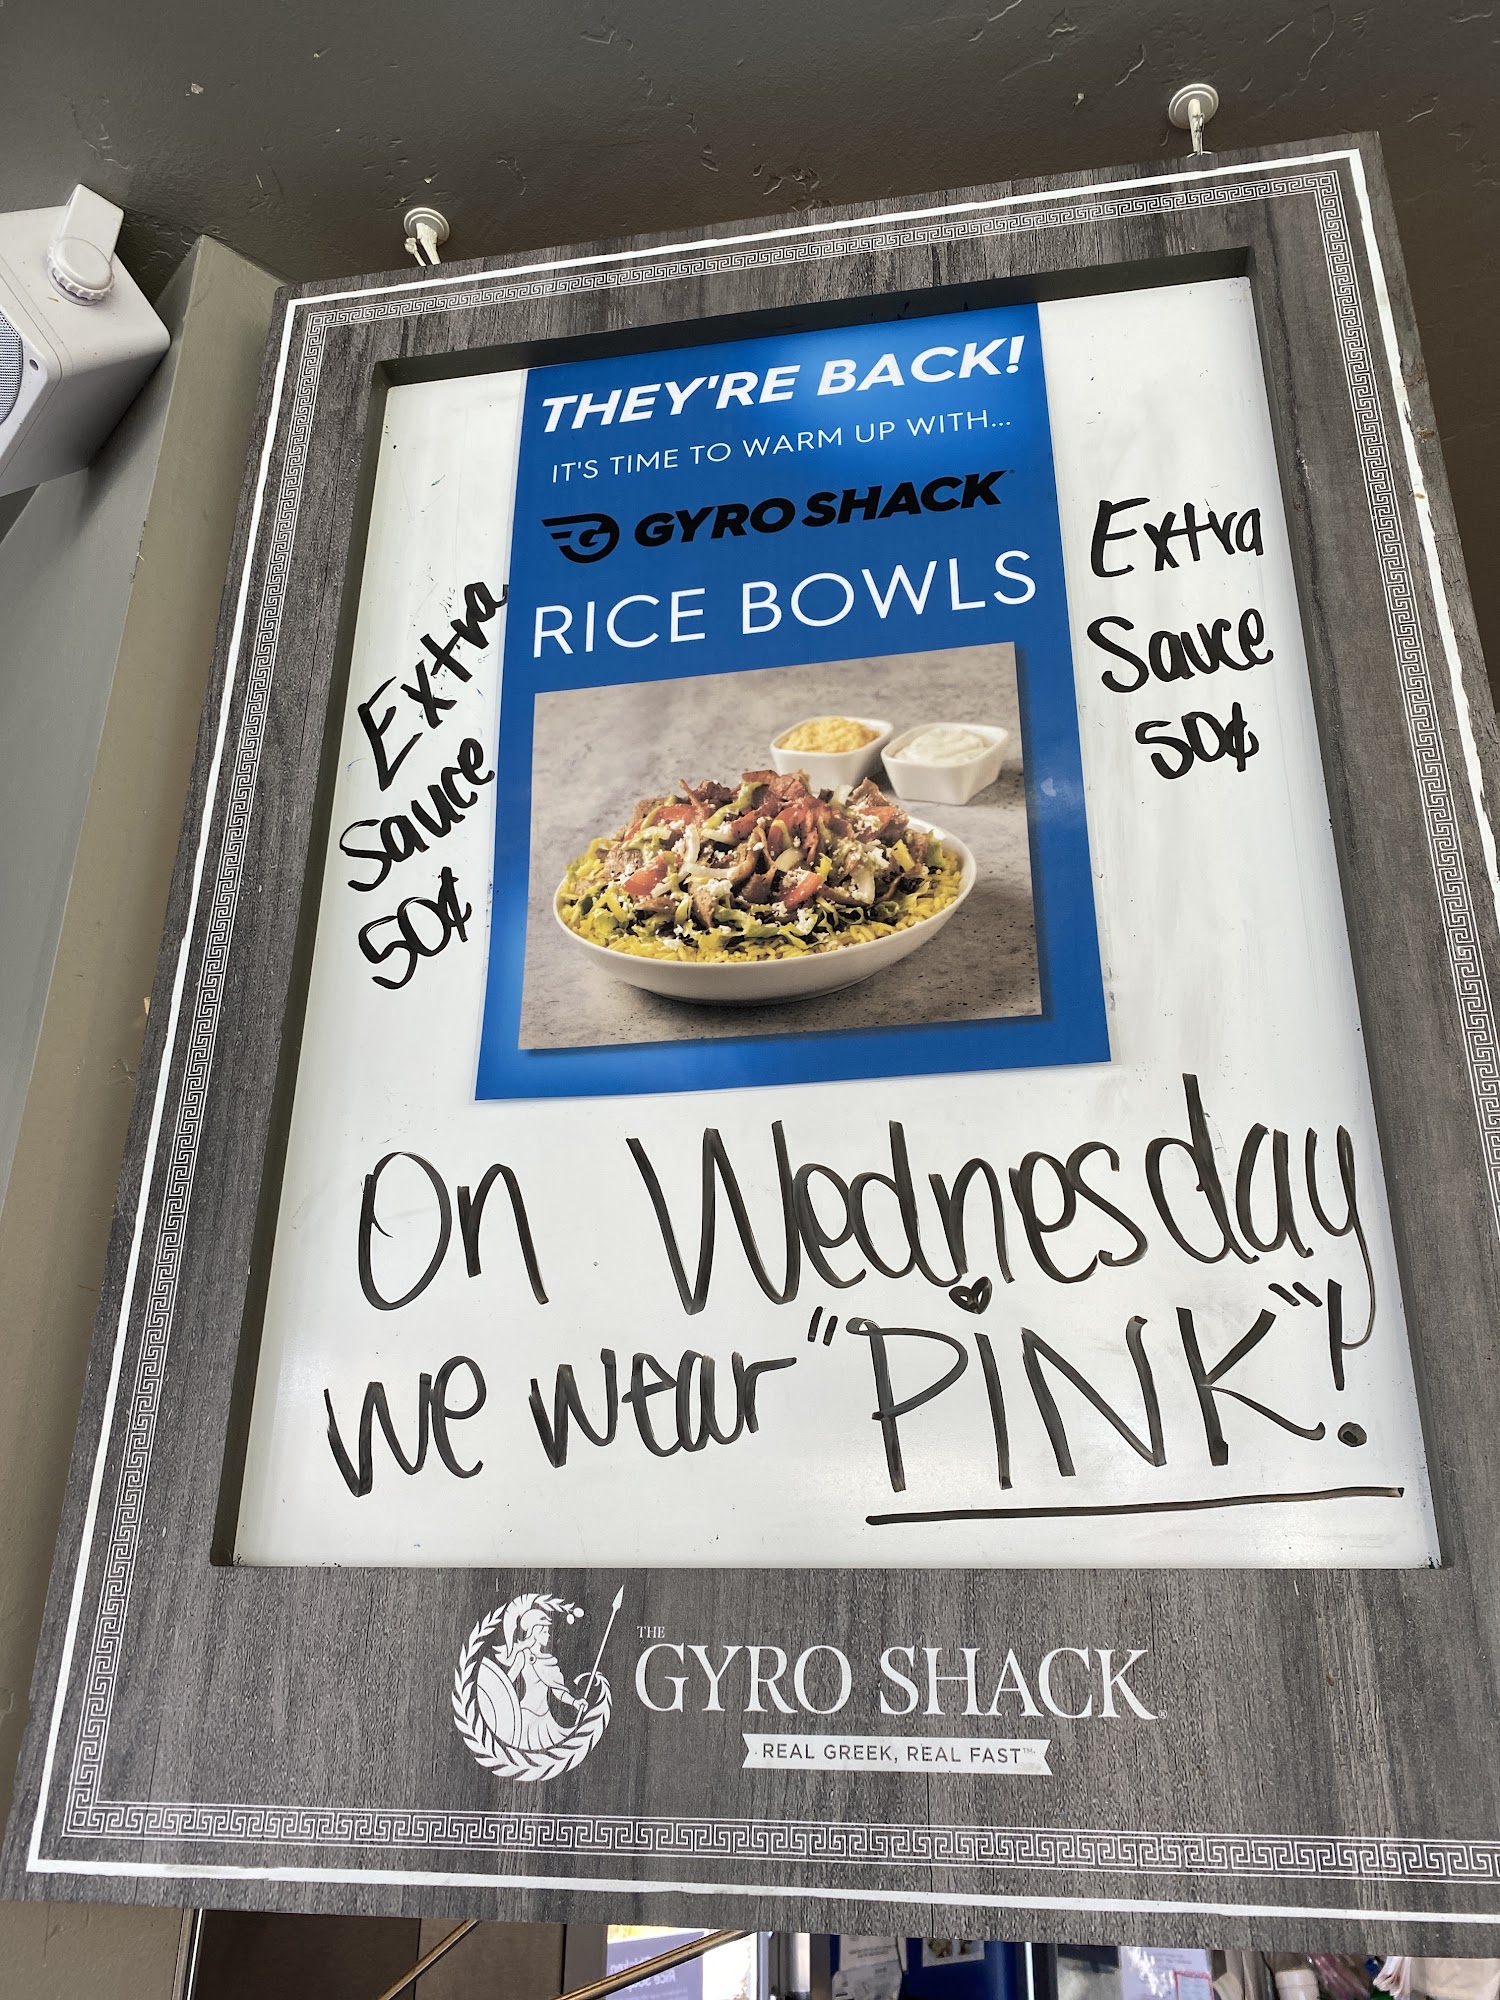 THEY'RE BACK!
IT'S TIME TO WARM UP WITH...
G GYRO SHACK
RICE BOWLS
Extra
Sauce
50¢
Extra
Sauce
50¢
On Wednesday
we wear "PiNK"!
THE
GYRO SHACK®
REAL GREEK, REAL FAST™